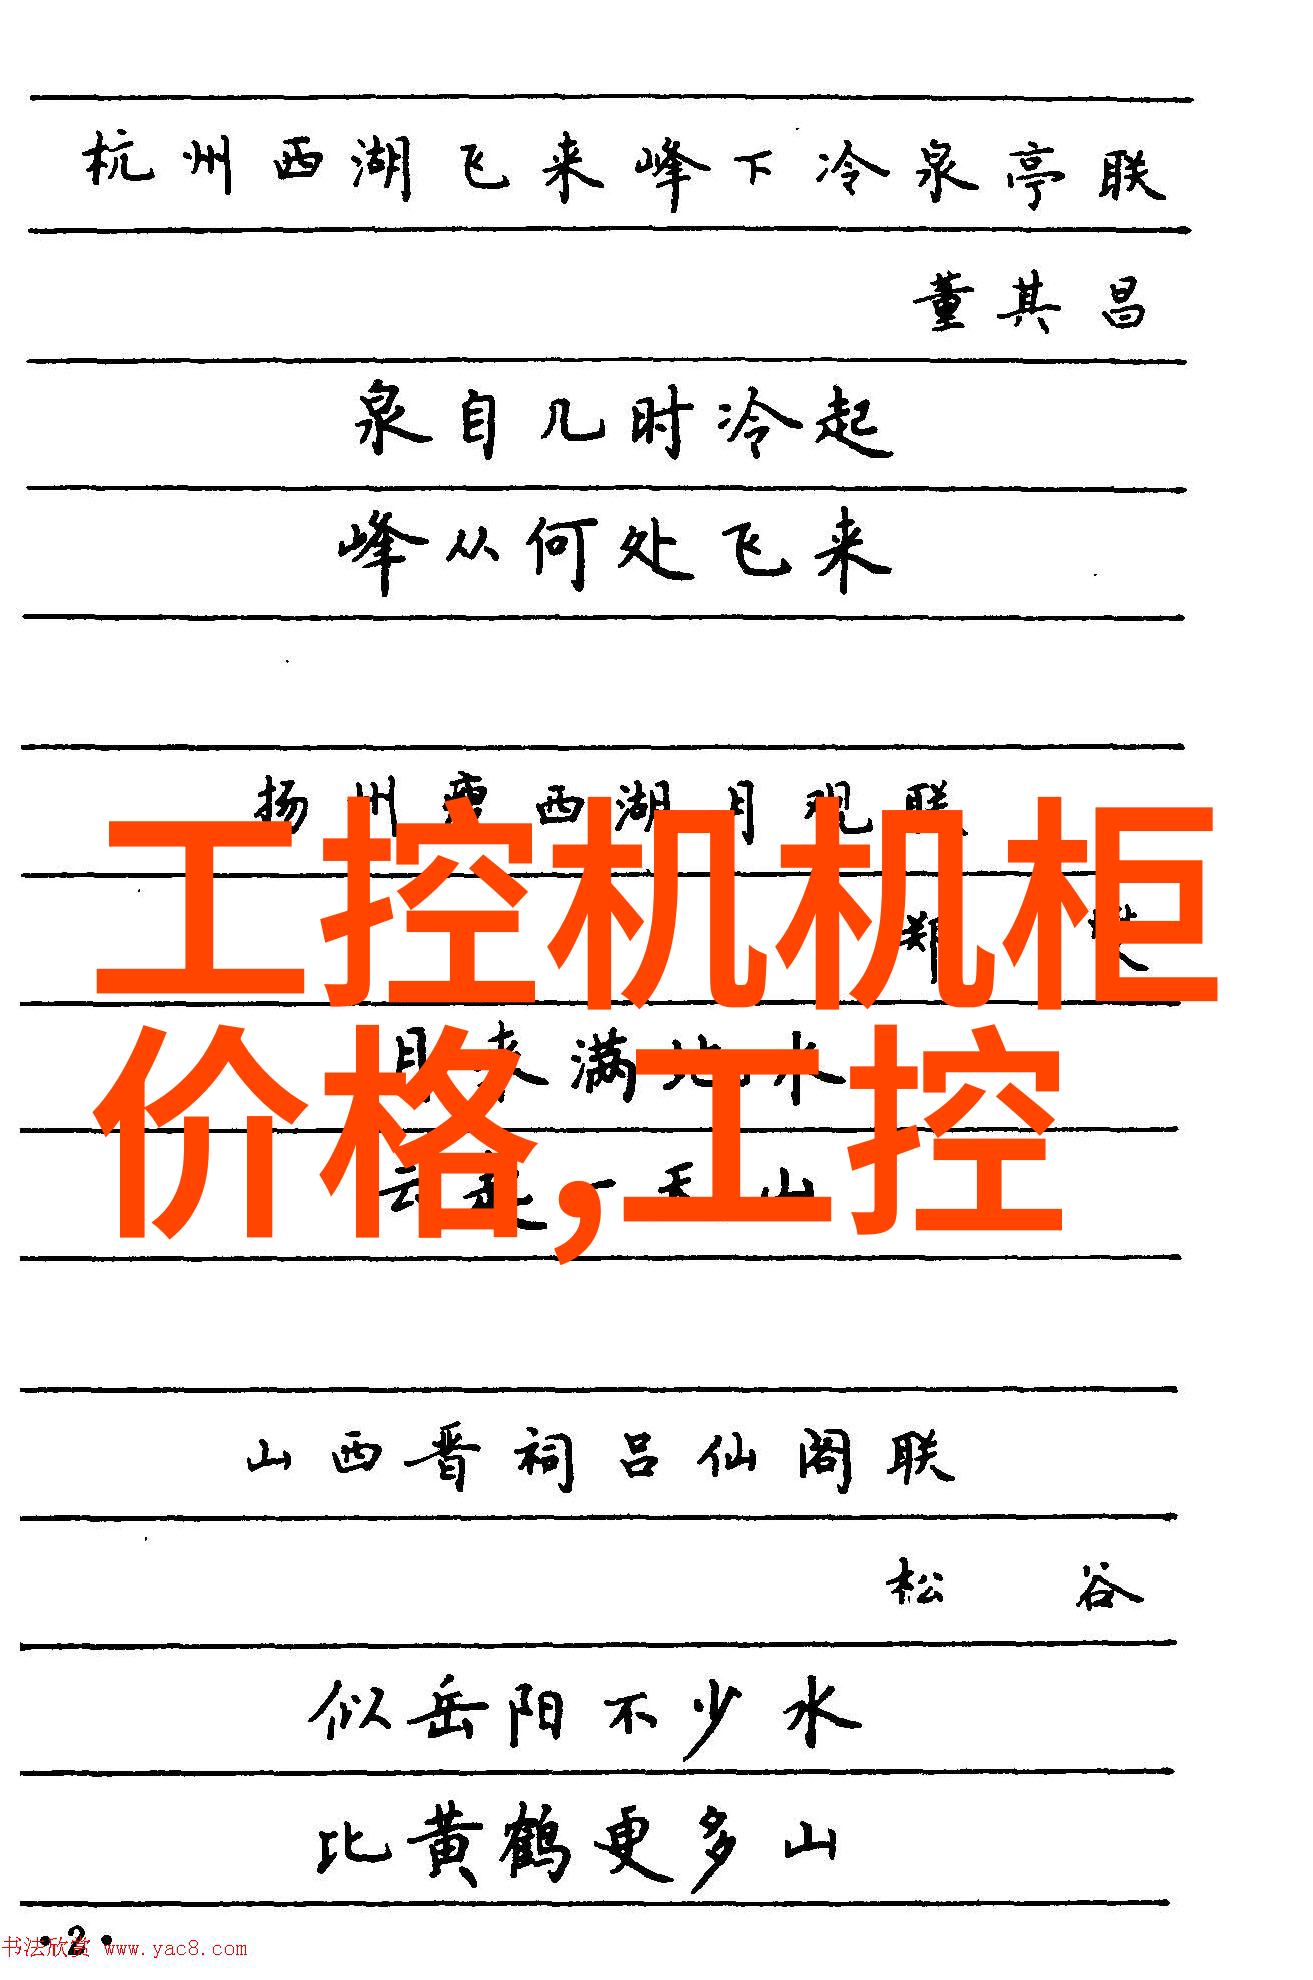 杭州西湖飞来峰下冷泉亭联
董其昌
泉自几时冷起
峰从何处飞来
扬州瘦西湖月观联
工控机机柜
郑
月来满地水
价格,工控
云起一天山
山西晋祠吕仙阁联
松谷
似岳阳不少水
比黄鹤更多山
·2·
书法欣赏 www.yac8.com